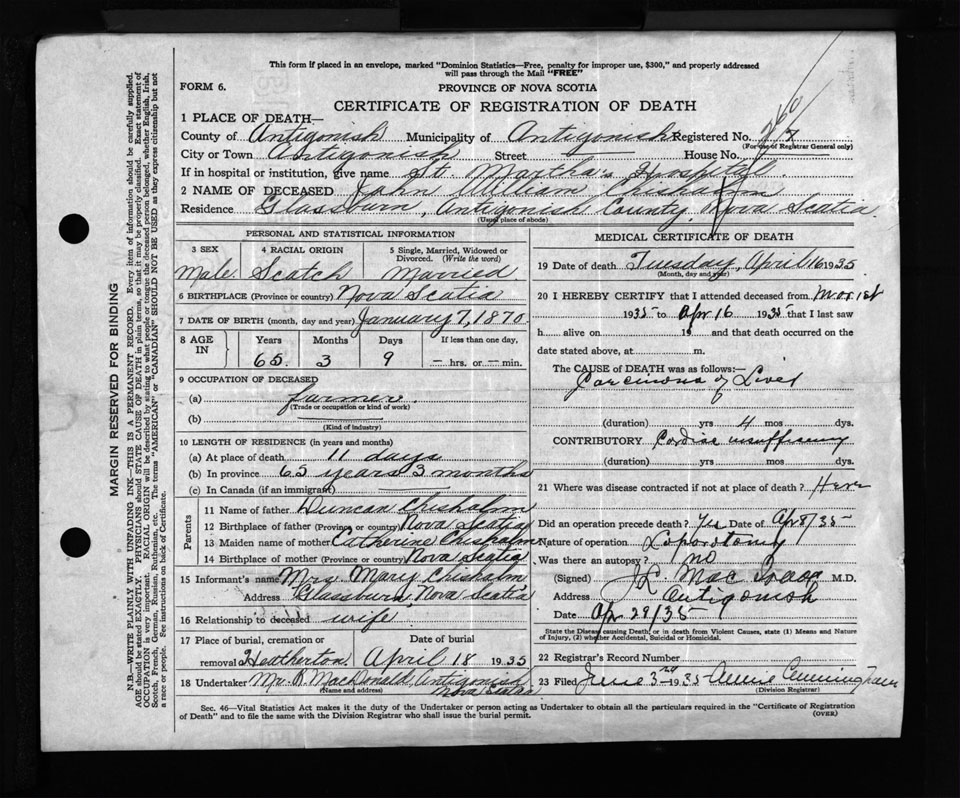 This form if placed in an envelope, marked "Dominion Statistics—Free, penalty for improper use, $300," and properly addressed
will pass through the Mail "FREE"
FORM 6.
PROVINCE OF NOVA SCOTIA
CERTIFICATE OF REGISTRATION OF DEATH
1 PLACE OF DEATH—
County of Antigonish Municipality of Antigonish Registered No.
(For use of Registrar General only)
City or Town Antigonish Street — House No. —
If in hospital or institution, give name St. Martha's Hospital.
2 NAME OF DECEASED John William Chisholm
Residence Glassburn, Antigonish County, Nova Scotia.
(Usual place of abode)
PERSONAL AND STATISTICAL INFORMATION
3 SEX 4 RACIAL ORIGIN 5 Single, Married, Widowed or Divorced. (Write the word)
Male. Scotch Married
6 BIRTHPLACE (Province or country) Nova Scotia
7 DATE OF BIRTH (month, day and year) January 7, 1870.
8 AGE IN Years Months Days If less than one day,
65. 3 9 — hrs. or — min.
9 OCCUPATION OF DECEASED
(a) farmer.
(Trade or occupation or kind of work)
(b) —
(Kind of industry)
10 LENGTH OF RESIDENCE (in years and months)
(a) At place of death 11 days
(b) In province 65 years 3 months
(c) In Canada (if an immigrant) —
Parents
11 Name of father Duncan Chisholm
12 Birthplace of father (Province or country) Nova Scotia
13 Maiden name of mother Catherine Chisholm
14 Birthplace of mother (Province or country) Nova Scotia
15 Informant's name Mrs. Mary Chisholm
Address Glassburn, Nova Scotia
16 Relationship to deceased wife
17 Place of burial, cremation or Date of burial
removal Heatherton. April 18 1935
18 Undertaker Mr. R. MacDonald, Antigonish
(Name and address) Nova Scotia
MEDICAL CERTIFICATE OF DEATH
19 Date of death Tuesday, April 16 1935
(Month, day and year)
20 I HEREBY CERTIFY that I attended deceased from Mar 1st
1935 to Apr 16 1935 that I last saw
h alive on 19 and that death occurred on the
date stated above, at m.
The CAUSE of DEATH was as follows:—
Carcinoma of Liver
(duration) yrs 4 mos dys.
CONTRIBUTORY Cardiac insufficiency
(duration) yrs mos dys.
21 Where was disease contracted if not at place of death? Here
Did an operation precede death? Yes Date of Apr 8/35
Nature of operation Laporotomy
Was there an autopsy? no
(Signed) M.D.
Address Antigonish
Date Apr 29/35
State the Disease causing Death, or in death from Violent Causes, state (1) Means and Nature
of Injury, (2) whether Accidental, Suicidal or Homicidal.
22 Registrar's Record Number
23 Filed June 3rd 1935 Annie Cunningham
(Division Registrar)
Sec. 46—Vital Statistics Act makes it the duty of the Undertaker or person acting as Undertaker to obtain all the particulars required in the "Certificate of Registration
of Death" and to file the same with the Division Registrar who shall issue the burial permit. (OVER)
MARGIN RESERVED FOR BINDING
N.B.—WRITE PLAINLY WITH UNFADING INK—THIS IS A PERMANENT RECORD. Every item of information should be carefully supplied.
AGE should be stated EXACTLY. PHYSICIANS should STATE CAUSE OF DEATH in plain terms, so that it may be properly classified. Exact statement of
OCCUPATION is very important. RACIAL ORIGIN will be described by stating to what people or tongue the deceased person belonged, whether English, Irish,
Scotch, French, German, Russian, Ruthenian, etc. The terms "AMERICAN" or "CANADIAN" SHOULD NOT BE USED as they express citizenship but not
a race or people. See instructions on back of Certificate.